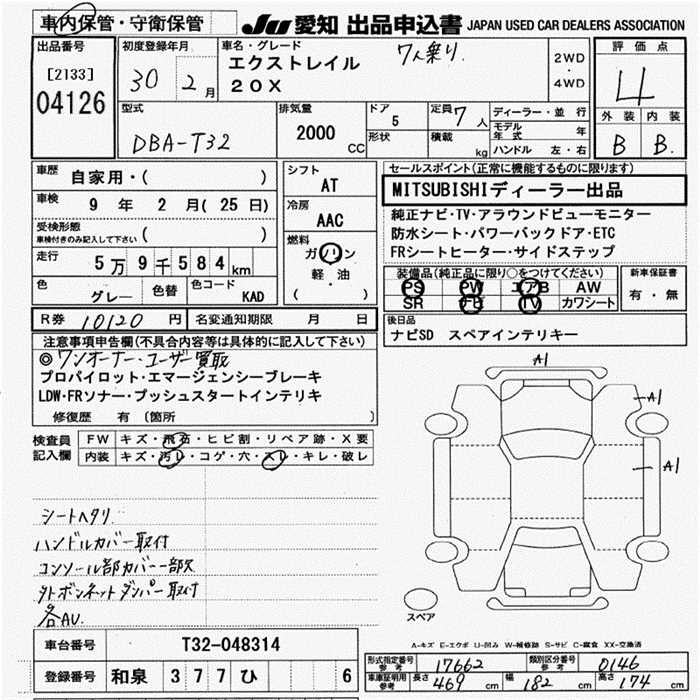 車内保管・守衛保管
JU 愛知 出品申込書 JAPAN USED CAR DEALERS ASSOCIATION
出品番号
[2133]
04126
初度登録年月
30 年 2 月
車名・グレード
7人乗り
エクストレイル
20X
2WD
・
4WD
評価点
4
外装 内装
B B.
型式
DBA-T32
排気量
2000 CC
ドア
5
形状
定員 7 人
積載 kg
ディーラー・並行
モデル年式 年
ハンドル 左・右
車歴
自家用・( )
車検 9 年 2 月(25日)
受検形態
車検付きのみ記入して下さい ( )
走行 5万9千584km
色 グレー 色替 色コード KAD
シフト
AT
冷房
AAC
燃料
ガソリン
軽・油
( )
セールスポイント(正常に機能するものに限ります)
MITSUBISHIディーラー出品
純正ナビ・TV・アラウンドビューモニター
防水シート・パワーバックドア・ETC
FRシートヒーター・サイドステップ
装備品(純正品に限り○をつけてください)
PS PW エアB AW
SR ナビ TV カワシート
新車保証書
有・無
R券 10120 円 名変通知期限 月 日
後日品
ナビSD スペアインテリキー
注意事項申告欄(不具合内容等は具体的に記入して下さい)
◎ワンオーナー・ユーザー買取
プロパイロット・エマージェンシーブレーキ
LDW・FRソナー・プッシュスタートインテリキ
修復歴 有 (箇所
検査員記入欄
FW キズ・飛石・ヒビ割・リペア跡・X要
内装 キズ・汚レ・コゲ・穴・スレ・キレ・破レ
シートヘタリ
ハンドルカバー取付
コンソール部カバー一部欠
外ボンネットダンパー取付
各AU.
A1
A1
A1
スペア
A-キズ E-エクボ U-凹み W-補修跡 S-サビ C-腐食 XX-交換済
車台番号 T32-048314
登録番号 和泉 377 ひ 6
形式指定番号参考 17662 類別区分番号参考 0146
車庫証明用参考 長さ 469 cm 幅 182 cm 高さ 174 cm